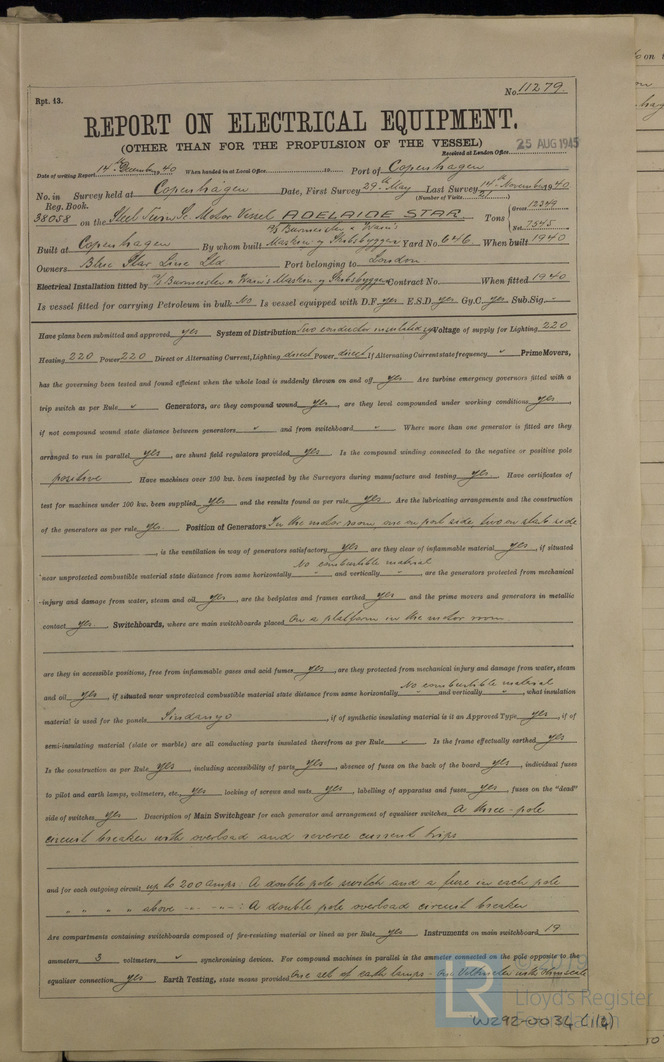 Rpt. 13.
No. 11279
REPORT ON ELECTRICAL EQUIPMENT.
(OTHER THAN FOR THE PROPULSION OF THE VESSEL)
25 AUG 1945
Received at London Office
Date of writing Report 14th December 40 When handed in at Local Office 19 Port of Copenhagen
No. in Survey held at Copenhagen Date, First Survey 29th May Last Survey 14th November 1940
Reg. Book. (Number of Visits)
38058 on the Steel Twin Sc. Motor Vessel ADELAIDE STAR Tons Gross 12349 Net 7545
Built at Copenhagen By whom built A/S Burmeister & Wain's Maskin- og Skibsbyggeri Yard No. 646 When built 1940
Owners Blue Star Line Ltd. Port belonging to London
Electrical Installation fitted by A/S Burmeister & Wain's Maskin- og Skibsbyggeri Contract No. When fitted 1940
Is vessel fitted for carrying Petroleum in bulk No Is vessel equipped with D.F. yes E.S.D. yes Gy.C. yes Sub.Sig. -
Have plans been submitted and approved yes System of Distribution Two conductor insulated Voltage of supply for Lighting 220
Heating 220 Power 220 Direct or Alternating Current, Lighting direct Power direct If Alternating Current state frequency Prime Movers,
has the governing been tested and found efficient when the whole load is suddenly thrown on and off yes Are turbine emergency governors fitted with a
trip switch as per Rule Generators, are they compound wound yes, are they level compounded under working conditions yes,
if not compound wound state distance between generators and from switchboard Where more than one generator is fitted are they
arranged to run in parallel yes, are shunt field regulators provided yes Is the compound winding connected to the negative or positive pole
positive Have machines over 100 kw. been inspected by the Surveyors during manufacture and testing yes Have certificates of
test for machines under 100 kw. been supplied yes and the results found as per rule yes Are the lubricating arrangements and the construction
of the generators as per rule yes. Position of Generators In the motor room, one on port side two on starb side
, is the ventilation in way of generators satisfactory yes are they clear of inflammable material yes, if situated
No combustible material
near unprotected combustible material state distance from same horizontally " and vertically ", are the generators protected from mechanical
injury and damage from water, steam and oil yes, are the bedplates and frames earthed yes and the prime movers and generators in metallic
contact yes Switchboards, where are main switchboards placed On a platform in the motor room
are they in accessible positions, free from inflammable gases and acid fumes yes, are they protected from mechanical injury and damage from water, steam
No combustible material
and oil yes, if situated near unprotected combustible material state distance from same horizontally " and vertically ", what insulation
material is used for the panels Sindanyo, if of synthetic insulating material is it an Approved Type yes, if of
semi-insulating material (slate or marble) are all conducting parts insulated therefrom as per Rule Is the frame effectually earthed yes
Is the construction as per Rule yes, including accessibility of parts yes, absence of fuses on the back of the board yes, individual fuses
to pilot and earth lamps, voltmeters, etc. yes locking of screws and nuts yes, labelling of apparatus and fuses yes, fuses on the "dead"
side of switches yes. Description of Main Switchgear for each generator and arrangement of equaliser switches A three-pole
circuit breaker with overload and reverse current trips
and for each outgoing circuit up to 200 amps: A double pole switch and a fuse in each pole
" " " " above -"- -"-: A double pole overload circuit breaker
Are compartments containing switchboards composed of fire-resisting material or lined as per Rule yes Instruments on main switchboard 19
ammeters 3 voltmeters synchronising devices. For compound machines in parallel is the ammeter connected on the pole opposite to the
equaliser connection yes Earth Testing, state means provided One set of earth lamps - one Voltmeter with
© 2019
LR
Lloyd's Register
Foundation
W292-0034 (1/4)